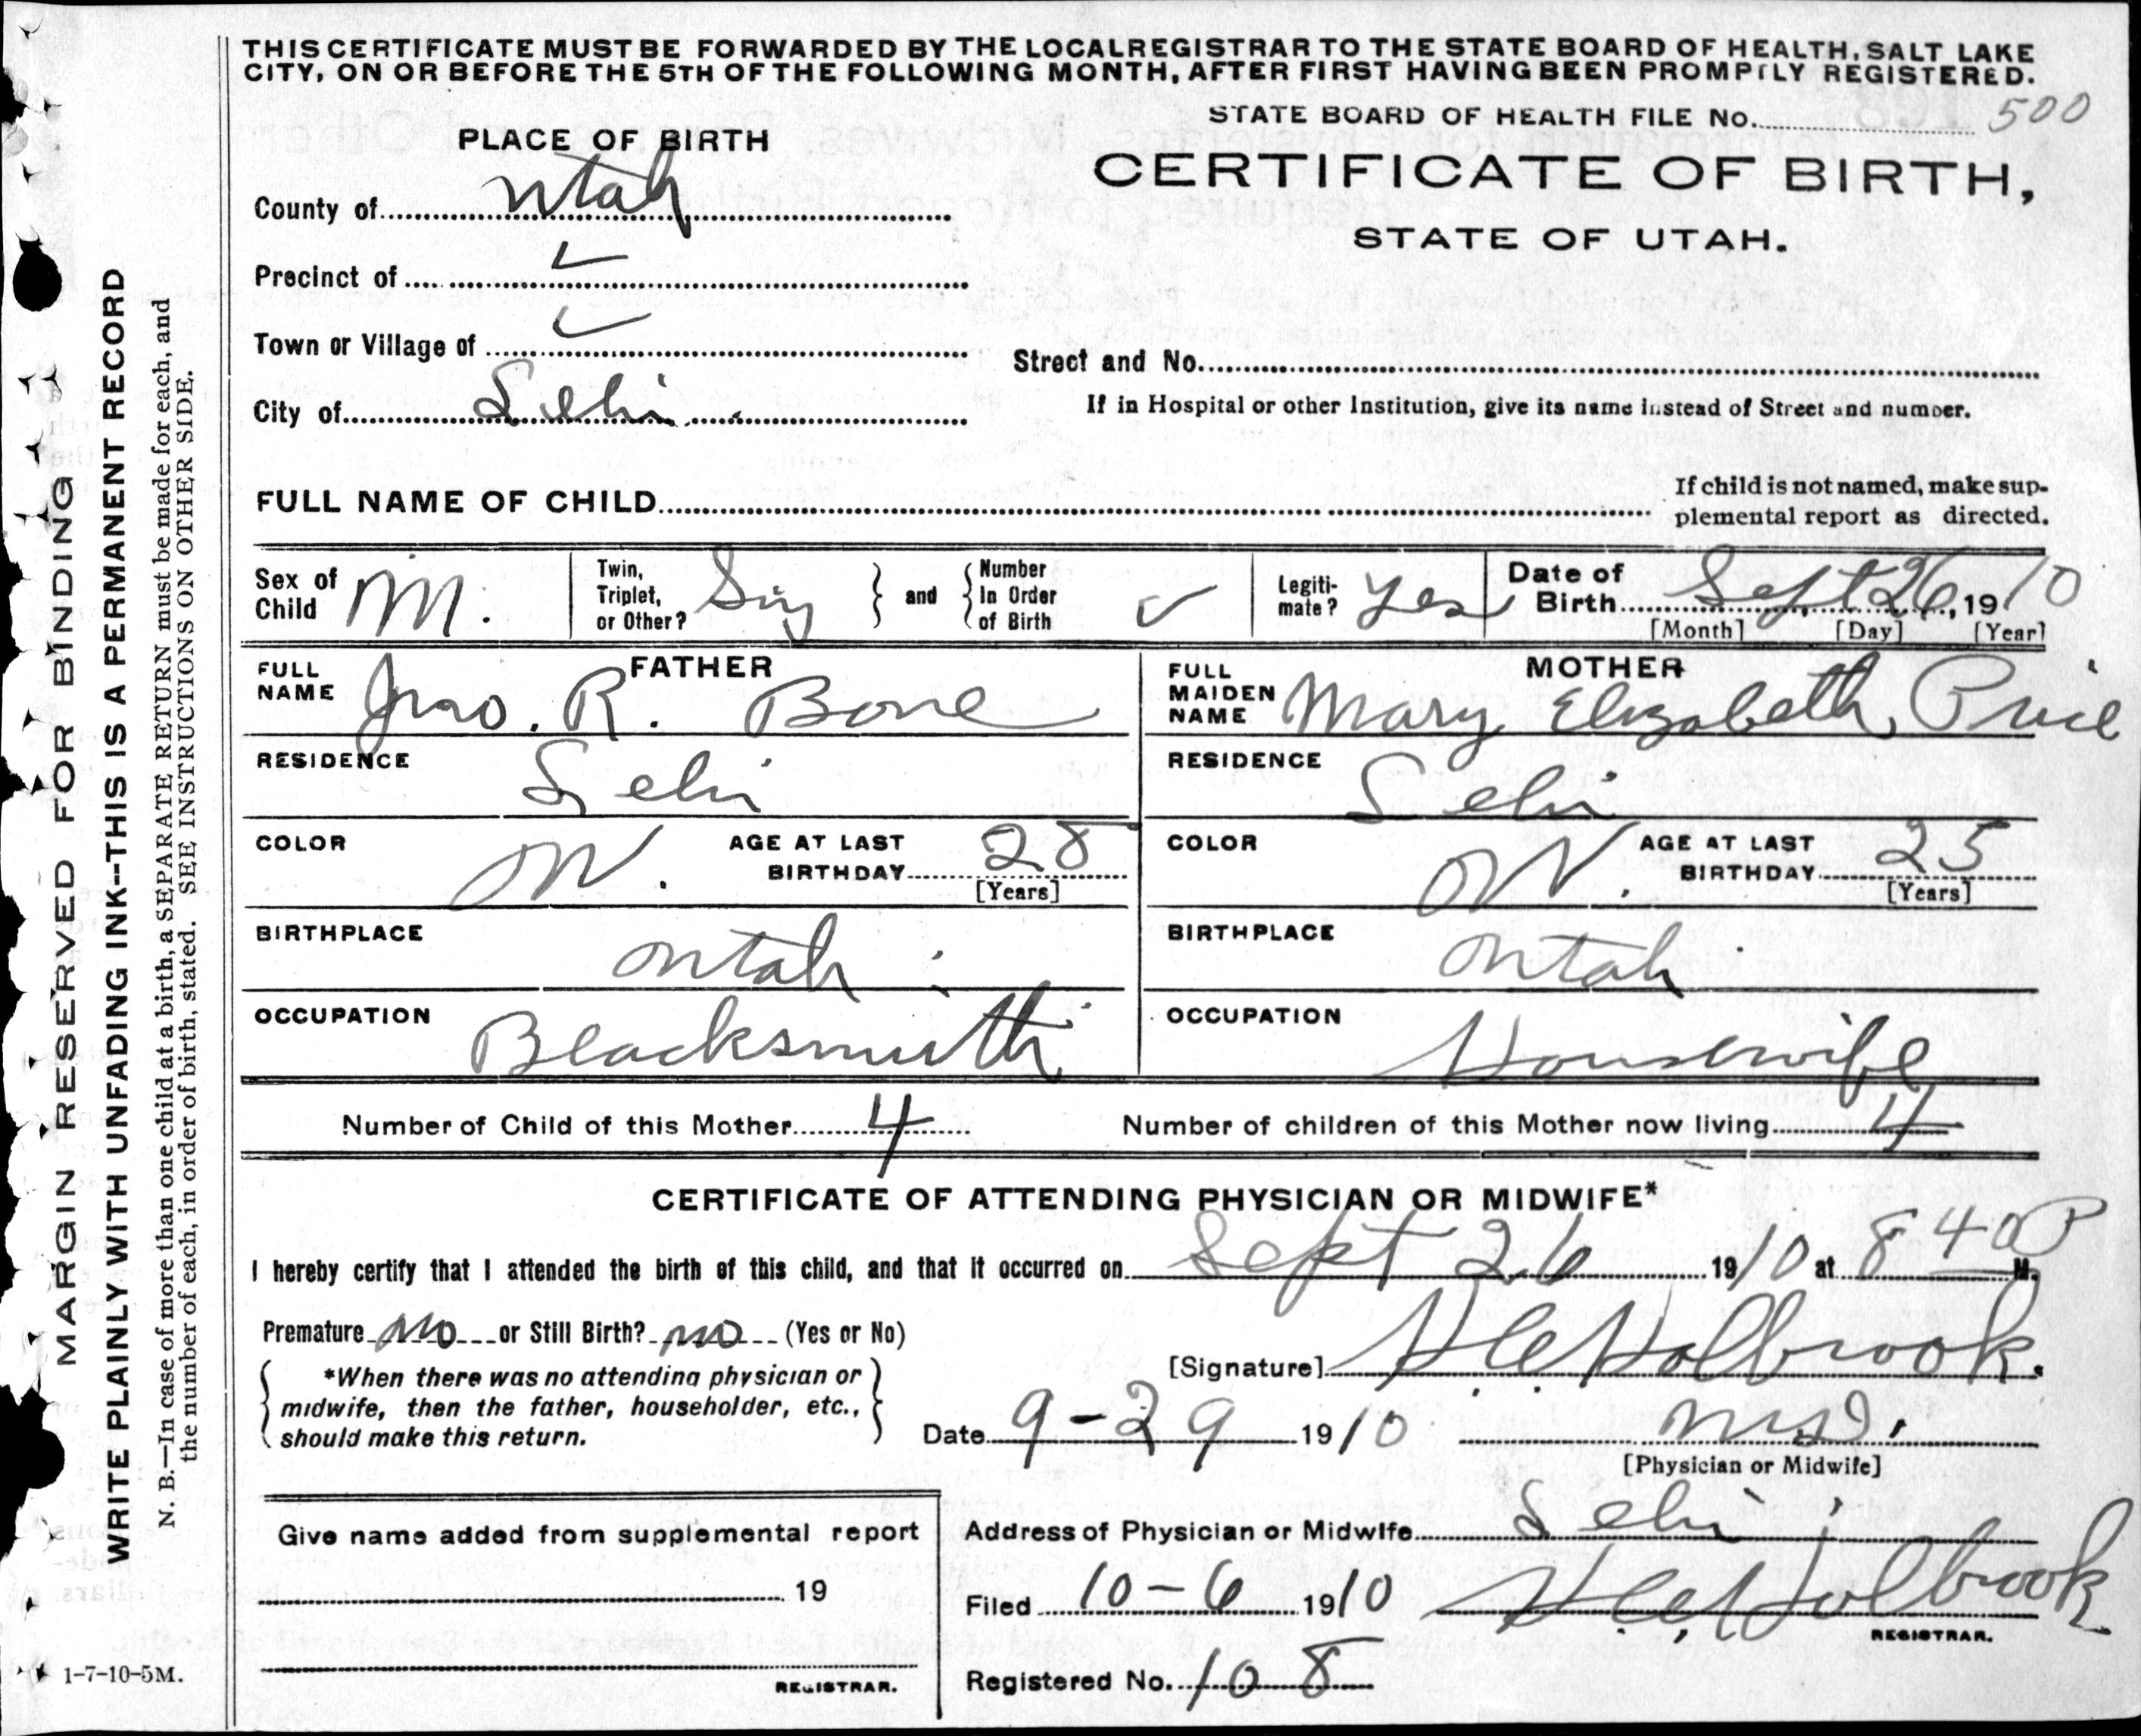 THIS CERTIFICATE MUST BE FORWARDED BY THE LOCAL REGISTRAR TO THE STATE BOARD OF HEALTH, SALT LAKE
CITY, ON OR BEFORE THE 5TH OF THE FOLLOWING MONTH, AFTER FIRST HAVING BEEN PROMPTLY REGISTERED.
STATE BOARD OF HEALTH FILE No. 500
PLACE OF BIRTH
CERTIFICATE OF BIRTH,
STATE OF UTAH.
County of Utah
Precinct of ✓
Town or Village of ✓
Street and No.
City of Lehi
If in Hospital or other Institution, give its name instead of Street and number.
FULL NAME OF CHILD
If child is not named, make sup-
plemental report as directed.
Sex of
Child M.
Twin,
Triplet,
or Other? Sing
and
Number
In Order
of Birth ✓
Legiti-
mate? Yes
Date of
Birth Sept 26, 1910
[Month] [Day] [Year]
FATHER
FULL
NAME Jno. R. Bone
MOTHER
FULL
MAIDEN
NAME Mary Elizabeth Price
RESIDENCE Lehi
RESIDENCE Lehi
COLOR W. AGE AT LAST
BIRTHDAY 28
[Years]
COLOR W. AGE AT LAST
BIRTHDAY 25
[Years]
BIRTHPLACE Utah
BIRTHPLACE Utah
OCCUPATION Blacksmith
OCCUPATION Housewife
Number of Child of this Mother 4
Number of children of this Mother now living 4
CERTIFICATE OF ATTENDING PHYSICIAN OR MIDWIFE*
I hereby certify that I attended the birth of this child, and that it occurred on Sept 26 1910 at 8 40 P M.
Premature no or Still Birth? no (Yes or No)
*When there was no attending physician or
midwife, then the father, householder, etc.,
should make this return.
[Signature] Holbrook.
Date 9-29 1910 M.D.
[Physician or Midwife]
Give name added from supplemental report
19
REGISTRAR.
Address of Physician or Midwife Lehi
Filed 10-6 1910 Holbrook
REGISTRAR.
Registered No. 108
1-7-10-5M.
MARGIN RESERVED FOR BINDING
WRITE PLAINLY WITH UNFADING INK--THIS IS A PERMANENT RECORD
N. B.—In case of more than one child at a birth, a SEPARATE RETURN must be made for each, and
the number of each, in order of birth, stated. SEE INSTRUCTIONS ON OTHER SIDE.